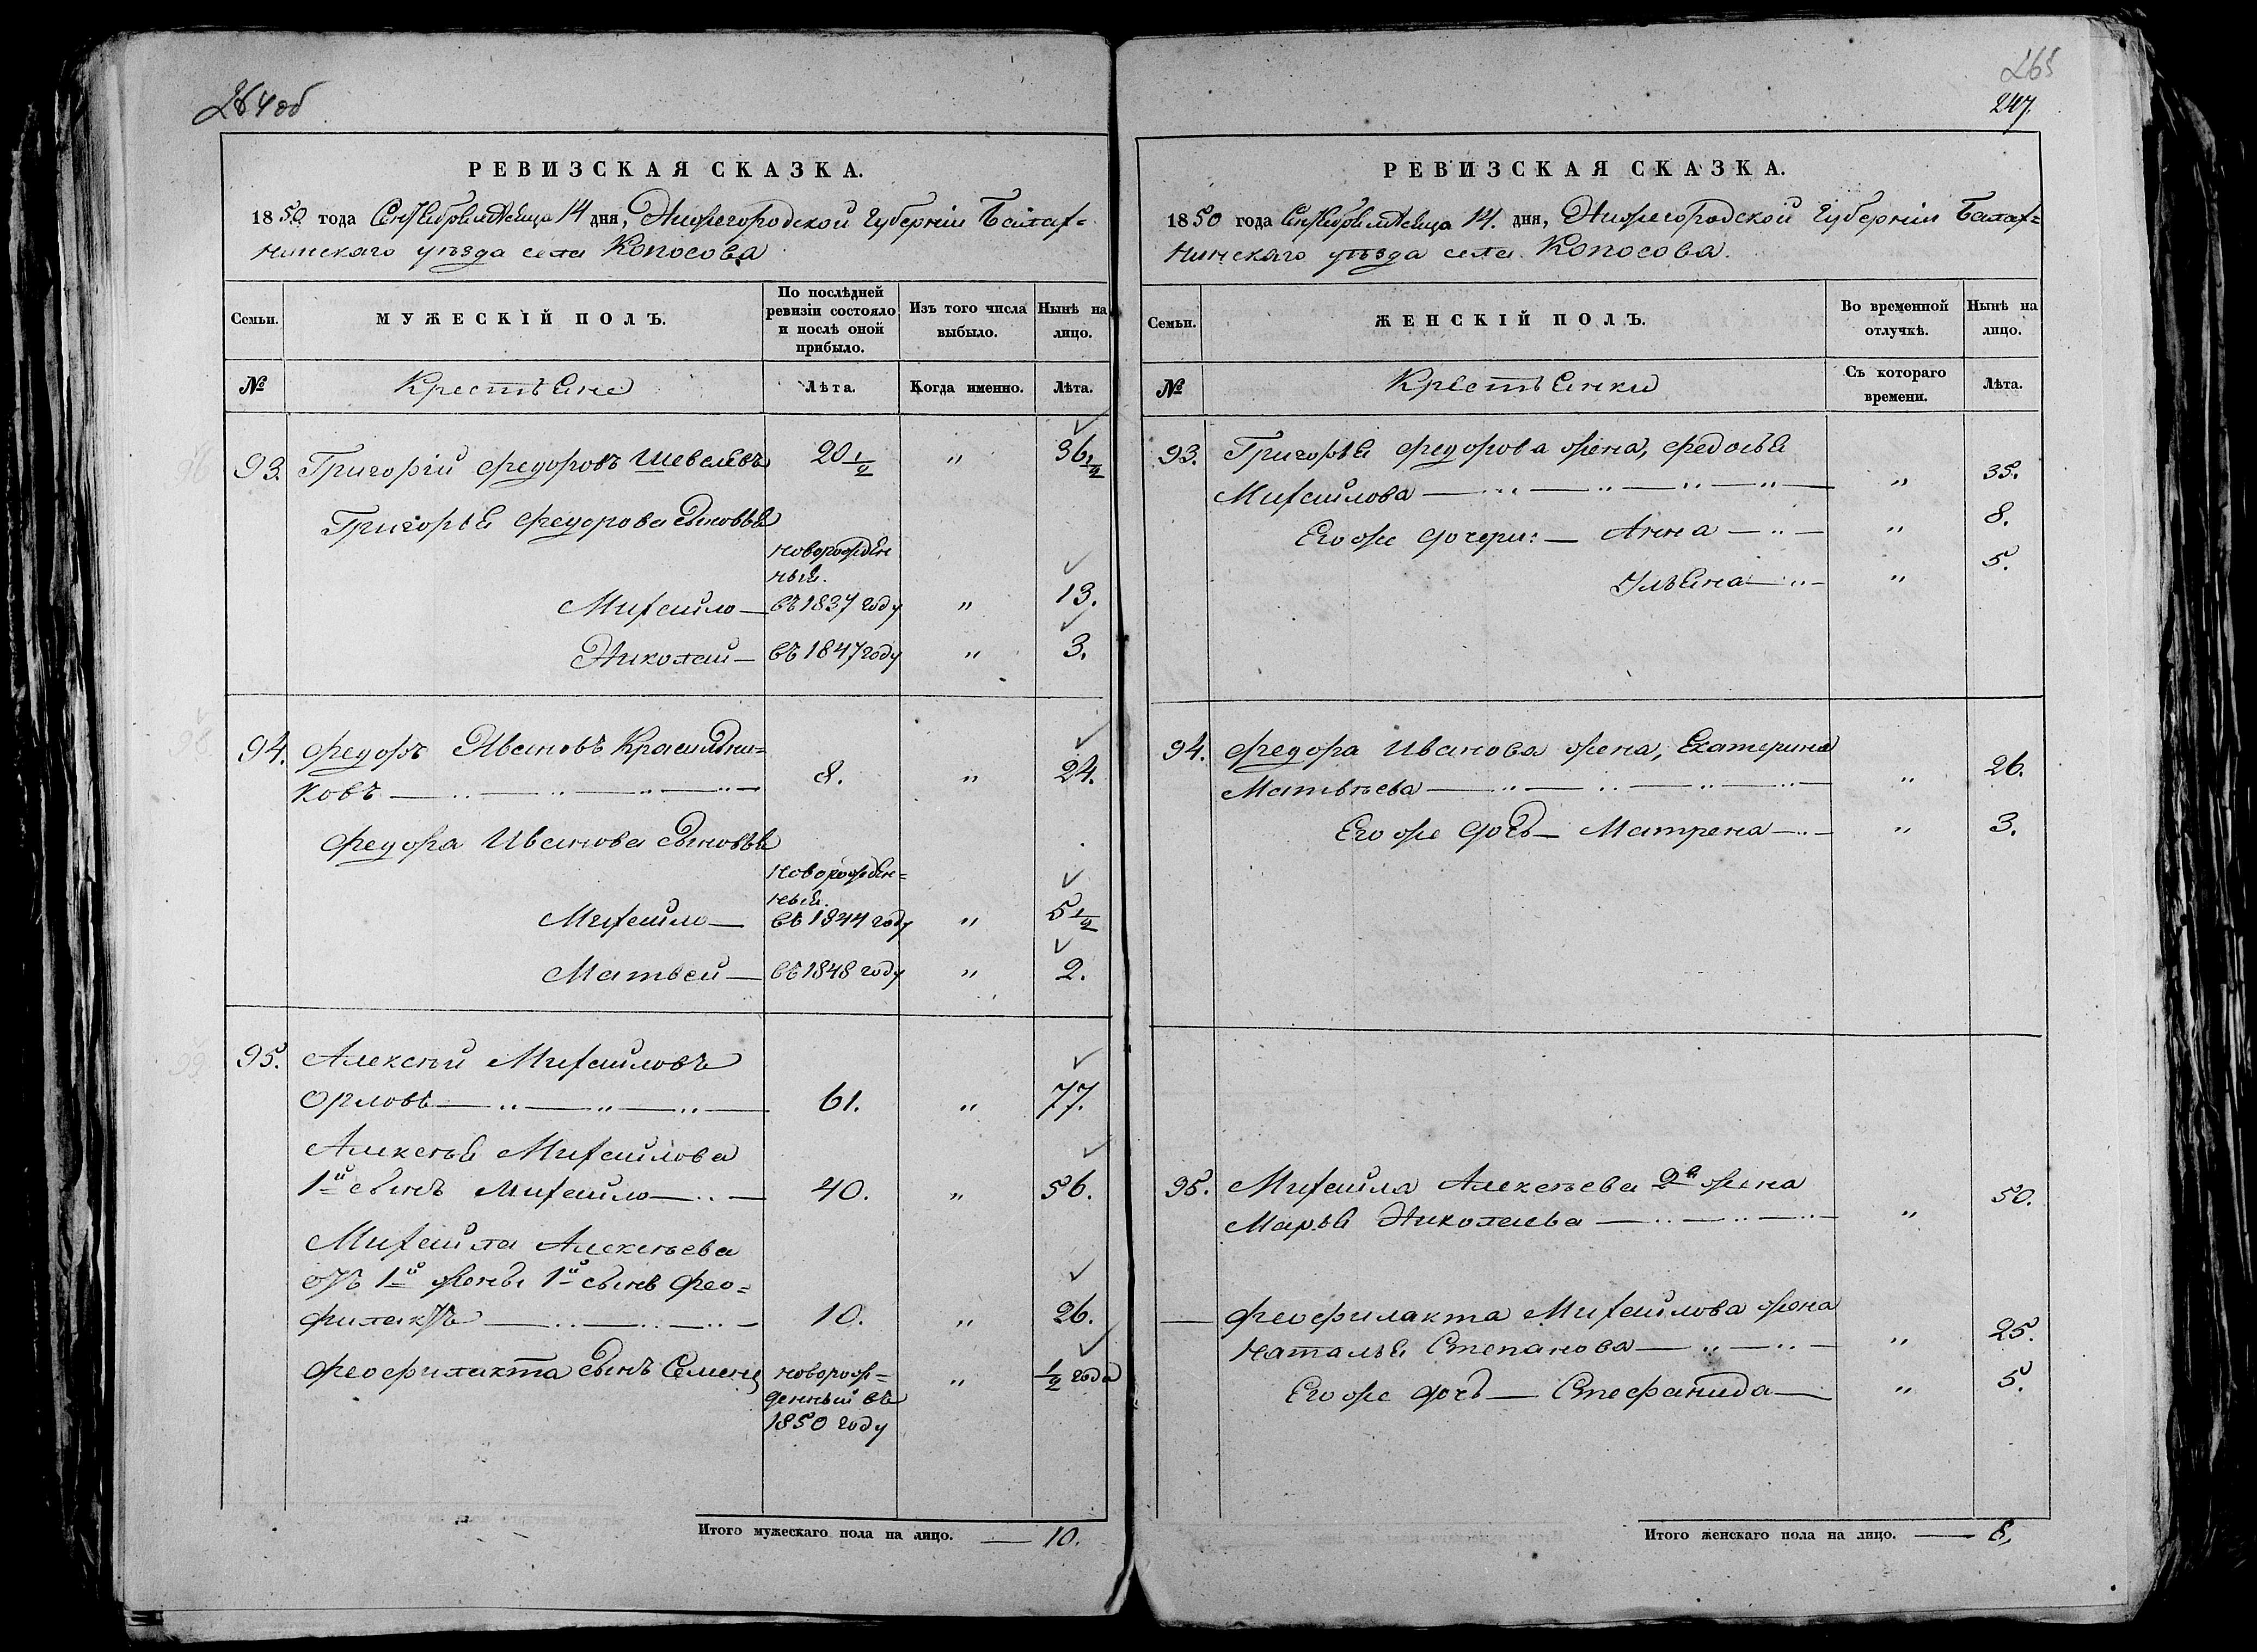 264об
РЕВИЗСКАЯ СКАЗКА.
1850 года Сентября мѣсяца 14 дня, Нижегородской Губерніи Балах=
нинскаго уѣзда села Копосова
Семьи.
МУЖЕСКІЙ ПОЛЪ.
По послѣдней ревизіи состояло и послѣ оной прибыло.
Изъ того числа выбыло.
Нынѣ на лицо.
№
Крестьяне
Лѣта.
Когда именно.
Лѣта.
93. Григорій Федоровъ Шевелевъ 20 1/2 " 36 1/2
Григорья Федорова сыновья
новорожден
ный.
Михайло — въ 1837 году " 13.
Николай — въ 1847 году " 3.
94. Федоръ Ивановъ Красильни=
ковъ — " — " — " — " — 8. " 24.
Федора Иванова сыновья
новорожден=
ный.
Михайло — въ 1844 году " 5 1/2
Матвей — въ 1848 году " 2.
95. Алексѣй Михайловъ
Орловъ — " — " — " — 61. " 77.
Алексѣя Михайлова
1й сынъ Михайло — " — 40. " 56.
Михайла Алексѣева
отъ 1й жены 1й сынъ Фео=
филактъ — " — " — " — 10. " 26.
Феофилакта сынъ Семенъ новорож= " 1/2 года
денный въ
1850 году
Итого мужескаго пола на лицо. — 10.
265
247.
РЕВИЗСКАЯ СКАЗКА.
1850 года Сентября мѣсяца 14. дня, Нижегородской Губерніи Балах=
нинскаго уѣзда села Копосова.
Семьи.
ЖЕНСКІЙ ПОЛЪ.
Во временной отлучкѣ.
Нынѣ на лицо.
№
Крестьянки
Съ котораго времени.
Лѣта.
93. Григорья Федорова жена, Федосья
Михайлова — " — " — " — " — " 35.
Его же дочери: — Анна — " — " 8.
Ульяна — " — " 5.
94. Федора Иванова жена, Екатерина
Матвѣева — " — " — " — " — " 26.
Его же дочь — Матрена — " — " 3.
95. Михайла Алексѣева 2я жена
Марья Николаева — " — " — " — " 50.
— Феофилакта Михайлова жена
Наталья Степанова — " — " — " 25.
Его же дочь — Стефанида — " 5.
Итого женскаго пола на лицо. — 8.